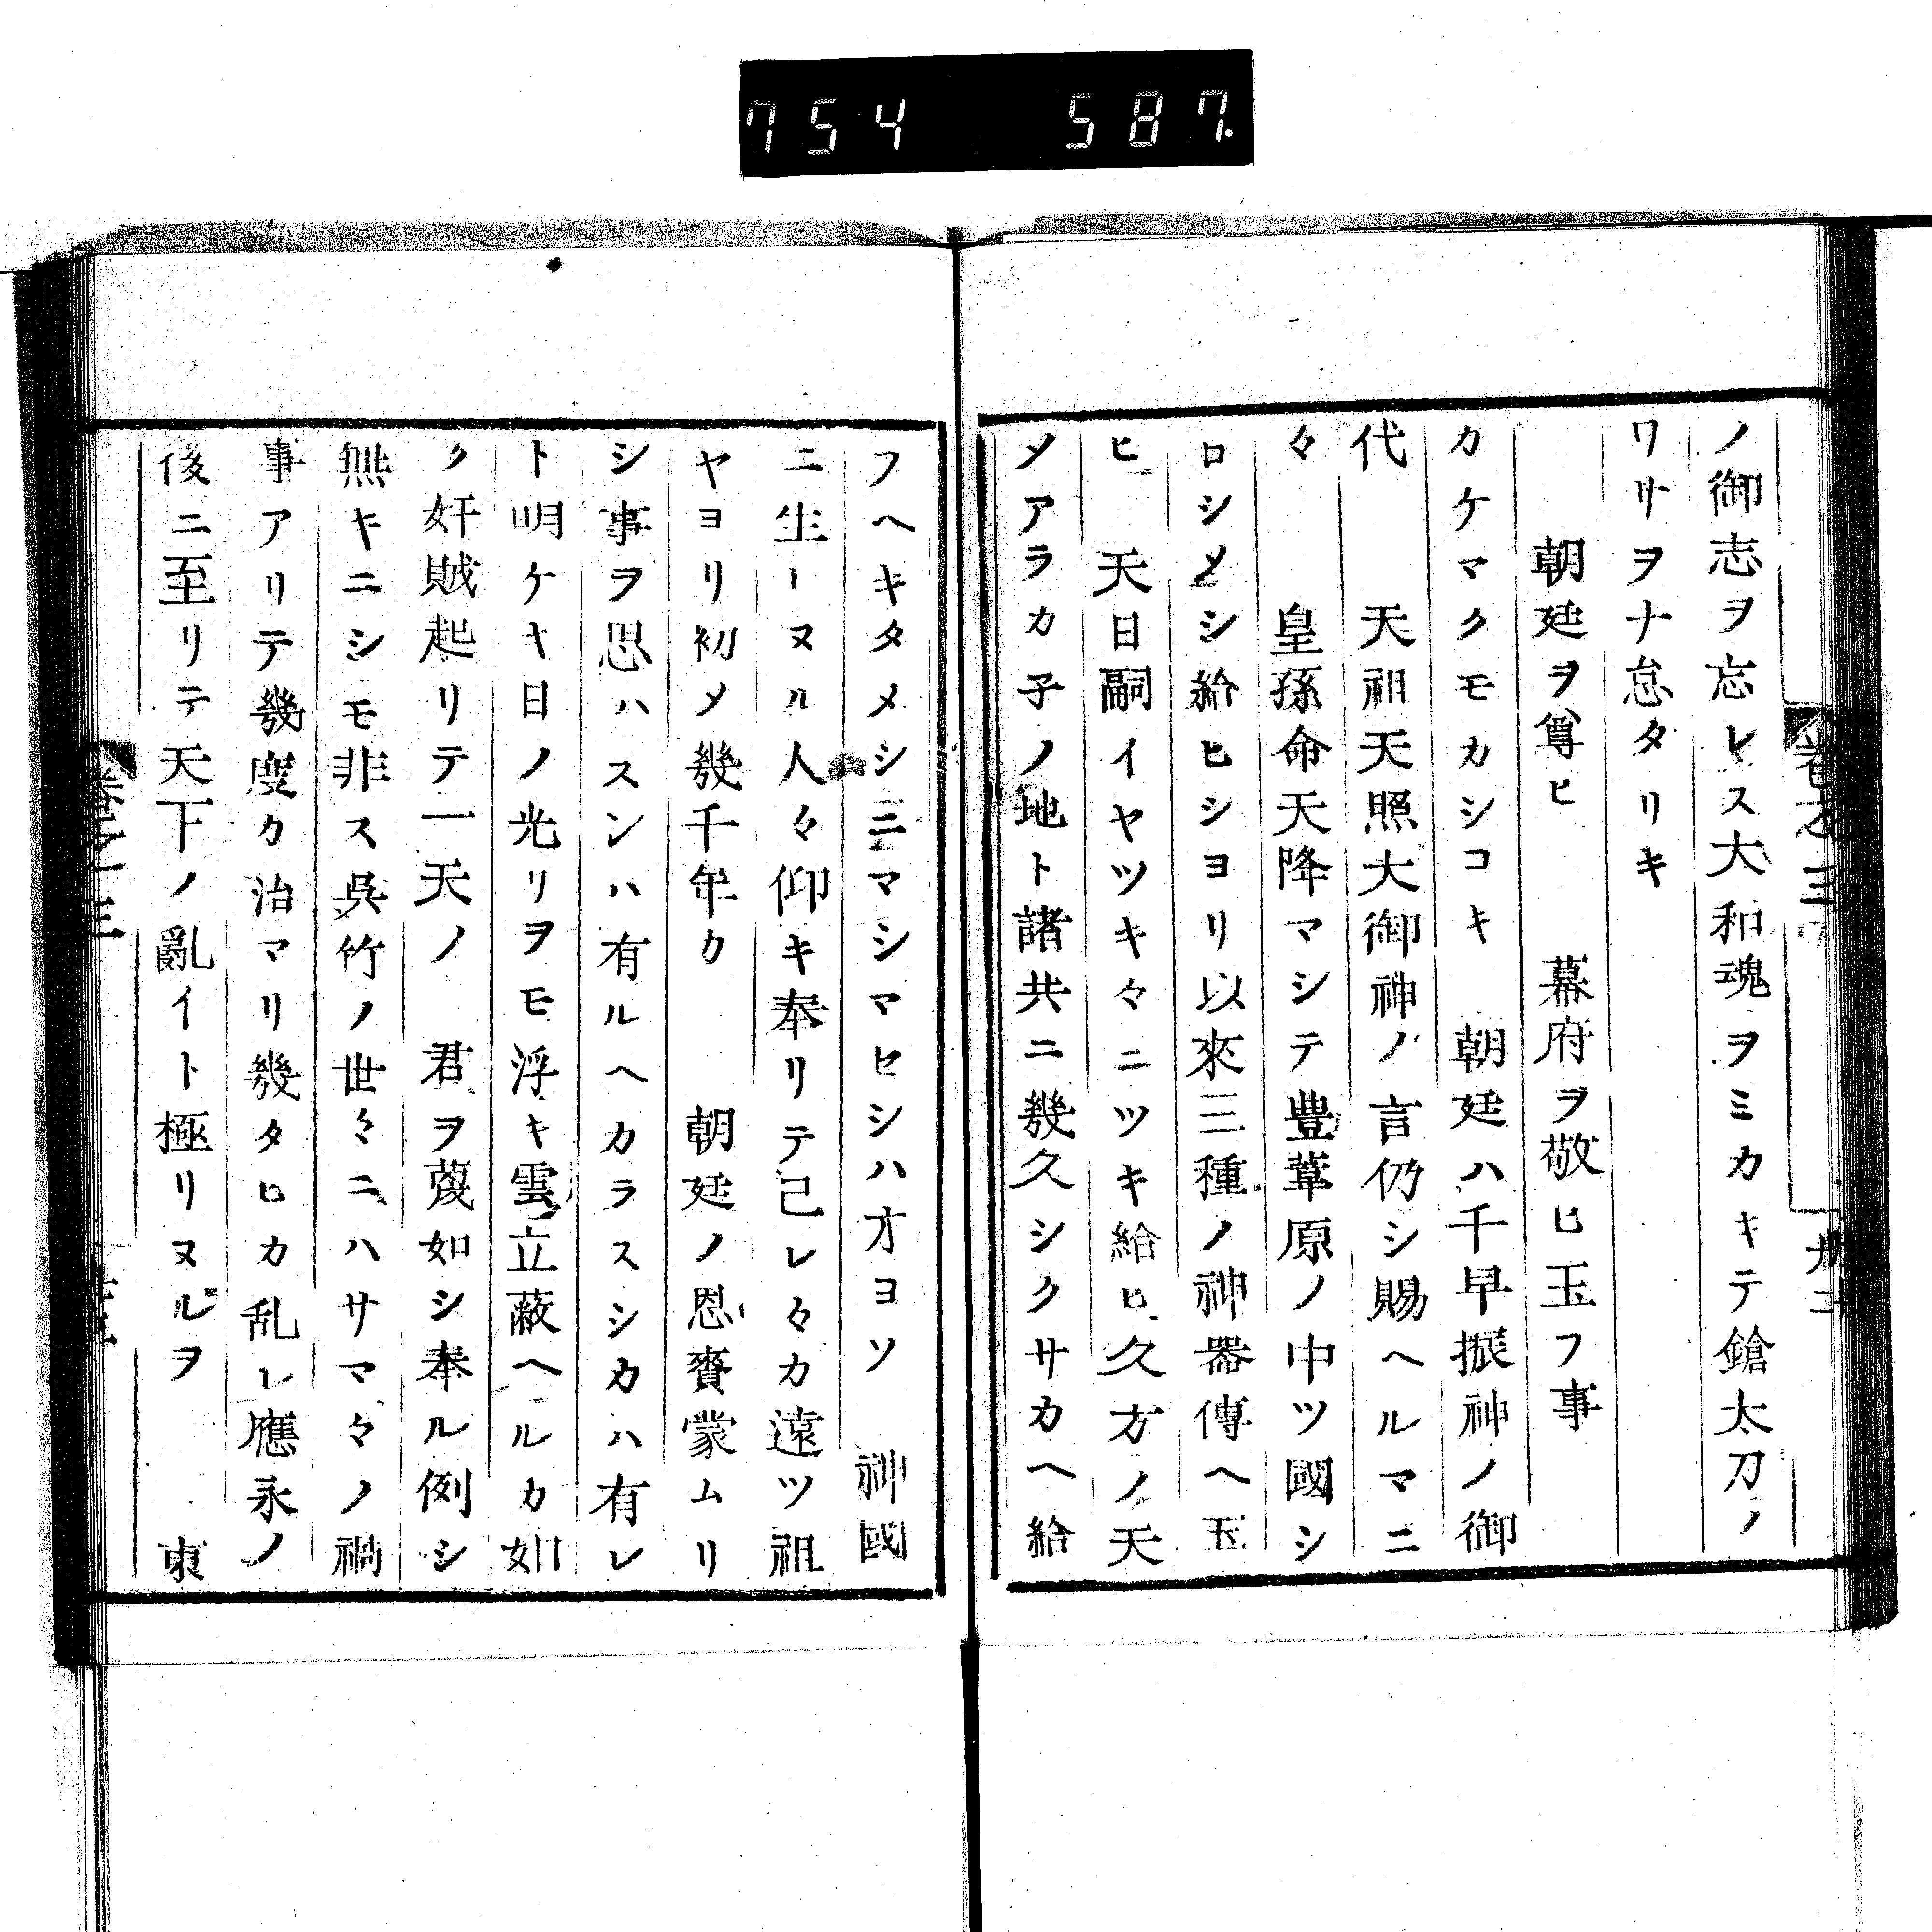 754 587.
ノ御志ヲ忘レス大和魂ヲミカキテ鎗太刀ノ
ワサヲナ怠タリキ
朝廷ヲ尊ヒ　幕府ヲ敬ヒ玉フ事
カケマクモカシコキ　朝廷ハ千早振神ノ御
代　天祖天照大御神ノ言仍シ賜ヘルマニ
々　皇孫命天降マシテ豊葦原ノ中ツ國シ
ロシメシ給ヒシヨリ以來三種ノ神器傳ヘ玉
ヒ　天日嗣イヤツキ々ニツキ給ヒ久方ノ天
メアラカ子ノ地ト諸共ニ幾久シクサカヘ給
フヘキタメシニマシマセシハオヨソ　神國
ニ生ーヌル人々仰キ奉リテ己レ々カ遠ツ祖
ヤヨリ初メ幾千年カ　朝廷ノ恩賚蒙ムリ
シ事ヲ思ハスンハ有ルヘカラスシカハ有レ
ト明ケキ日ノ光リヲモ浮キ雲立蔽ヘルカ如
ク奸賊起リテ一天ノ　君ヲ蔑如シ奉ル例シ
無キニシモ非ス呉竹ノ世々ニハサマ々ノ禍
事アリテ幾度カ治マリ幾タヒカ乱レ應永ノ
後ニ至リテ天下ノ亂イト極リヌルヲ　東